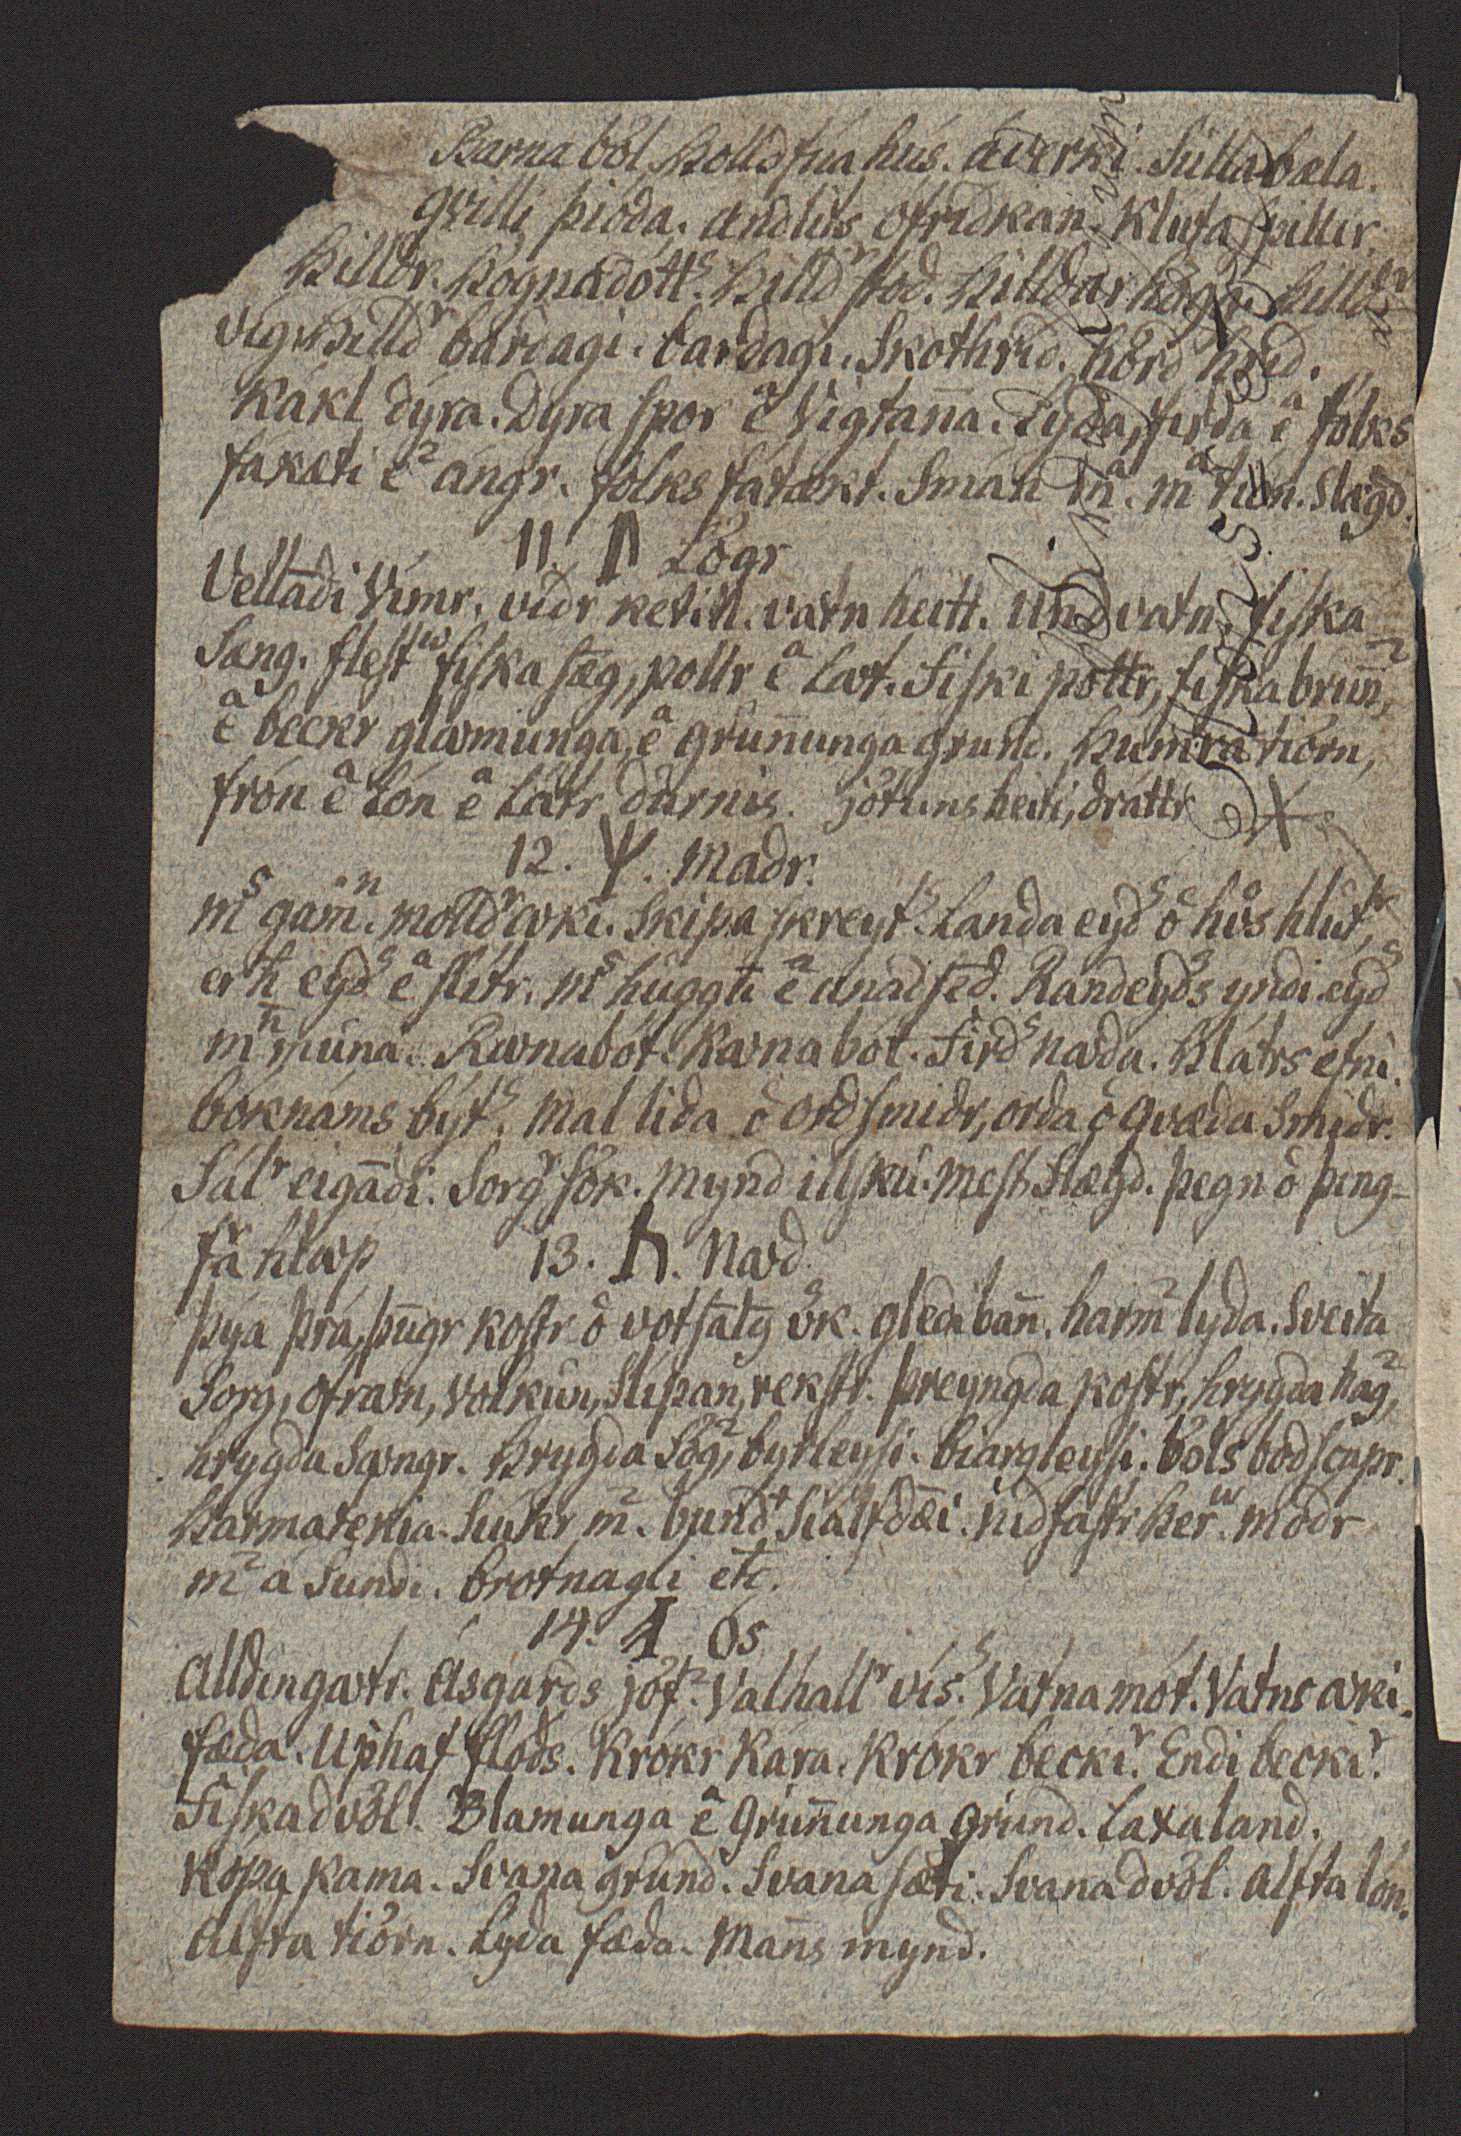 Barna böl holldfúa hús. áverki. Sulla bæla.
qvilli þióda. andlits ófrídkan. Kluta spillir.
Hilldr. Högnadótts. Hilldr stod. Hilldar högg. hilldr
víg. Hilldr bardagi. bardagi. Skothríd. hörd hríd.
Kákl dýra. Dýra spor ê Vigtan̄a. Lýda, firda ê folks
fákæti ê angr. folks fátækt. Smán mā. mā tión. Slægd.
11. ᛚ Lögr
Vellādi Vimr. vidr ketill. vatn heitt. Und vatn. fiska
Sæng. flest fiska sæg, pollr ê Lat. Fiski pottr, fiska brun̄,
ê beckr glamunga, ê grun̄unga grund. Humra tiörn,
frón ê Lón ê Látr durnis. jötuns heiti, dráttr
12. ᛉ. Madr.
ms gam̄. molldr auki. Skipa skreyts. Landa eyds ô hús hlut,
er h̄ eyds ê slitr. ms huggū ê unadsēd. Randeyds yndi. eyds
mn̄ muna. Runabót. Rauna bót. Firds nauda. Hlátrs efni.
bóknáms býts. Mál lida ô ordsmidr, orda ô qvæda Smidr.
Sálr eigādi. Sorgr sök. Mynd illsku. Mest Slægd. þegn ô þing-
fr̄a hlaup
13. ᚾ. Naud.
þýa þrá, þūgr kostr ô votsālg ök. gledi ban̄. harm lýda. Sveita
Sorg, ofraun, volkun, Slípan, rekstr. þreyngda kostr, hrygda hag,
hrygda Saungr. Hrygda Lög, byrleysi. biargleysi. böls bodscapr.
Harmatekia. Siukr m. bund Siálfdæi. nidfastr her. módr
m a Sundi. brotnagli etc.
14. ᚬ Ós
Alldingautr. Ásgards jöf. Valhallr vís. Vatna mót. Vatns auki.
fæda. Uphaf flóds. Krókr Kára. Krókr beckir. Endi beckir.
Fiska dvöl. Blamunga ê Grun̄unga Grund. Laxa land.
Kópa kama. Svana grund. Svana sæti. Svana dvöl. Alfta lón.
Alfta tiörn. Lýda fæda. Man̄s mynd.